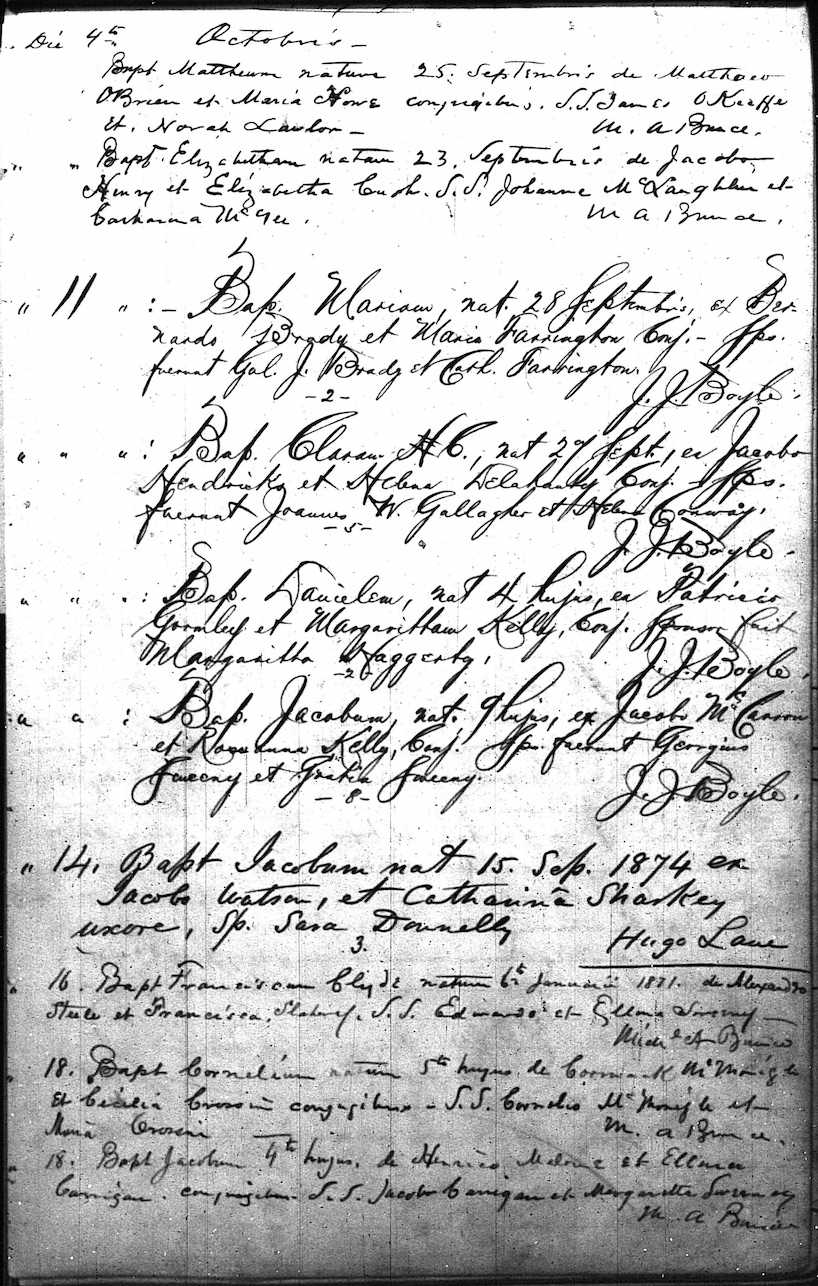 Die 4th Octobris —
Bapt Mattheum natum 25. Septembris de Matthaeo
OBrien et Maria Howe conjugibus. S.S. James OKeeffe
et. Norah Lawlor — M. A Bunce.
" " Bapt. Elizabetham natam 23. Septembris de Jacobo
Henry et Elizabetha Cush. S.S. Johanne McLaughlin et
Catharina McGee. M A Bunce.
" 11 " : — Bap. Mariam, nat. 28 Septembris, ex Ber-
nardo Brady et Maria Farrington Conj. — Sps.
fuerunt Gul. J. Brady et Cath. Farrington.
— 2 — J. J. Boyle.
" " " : Bap. Claram H C., nat 27 Sept., ex Jacobo
Hendricks et Helena Delahanty Conj. — Sps.
fuerunt Joannes W. Gallagher et Helena Conway.
— 5 —
J. J. Boyle.
" " " : Bap. Danielem, nat 4 hujus, ex Patricio
Gormley et Margarittam Kelly, Conj. Sponsor fuit
Margaritta Haggerty.
— 2 — J. J. Boyle.
" " : Bap. Jacobum, nat. 9 hujus, ex Jacobo McCarron
et Roseanna Kelly, Conj. Sps. fuerunt Georgius
Sweeny et Gratia Sweeny.
— 8 — J. J. Boyle.
" 14. Bapt Jacobum nat 15. Sep. 1874 ex
Jacobo Watson, et Catharinā Sharkey
uxore, Sp. Sara Donnelly
3. Hugo Lane
" 16. Bapt Franciscum Clyde natum 6th Januarii 1871. de Alexandro
Steele et Francisca. S.S. Edwardo et Ellena Sweeny —
Michl A Bunce
" 18. Bapt Cornelium natum 5th hujus de Cormack McMonigle
et Cecilia Crossin conjugibus — S.S. Cornelio McMonigle et
Maria Crossin — M. A Bunce.
" 18. Bapt Jacobum 4th hujus. de Henrico Malone et Ellena
Carrigan. conjugibus S.S. Jacobo Carrigan et Margaretta Sweeney
M. A Bunce